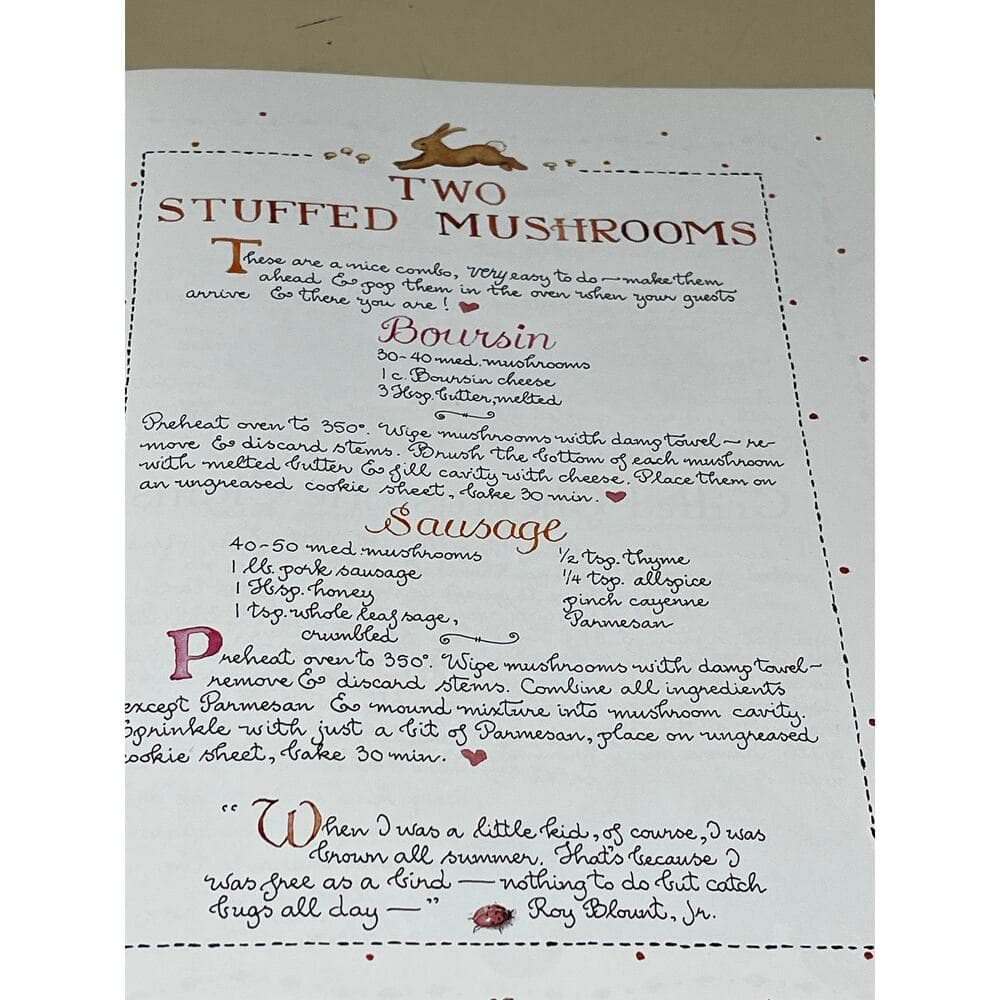 TWO
STUFFED MUSHROOMS
These are a nice combo, very easy to do — make them
ahead & pop them in the oven when your guests
arrive & there you are!
Boursin
30-40 med. mushrooms
1 c. Boursin cheese
3 Tbsp. butter, melted
Preheat oven to 350°. Wipe mushrooms with damp towel — re-
move & discard stems. Brush the bottom of each mushroom
with melted butter & fill cavity with cheese. Place them on
an ungreased cookie sheet, bake 30 min.
Sausage
40-50 med. mushrooms
1 lb. pork sausage
1 Tbsp. honey
1 tsp. whole leaf sage,
crumbled
1/2 tsp. thyme
1/4 tsp. allspice
pinch cayenne
Parmesan
Preheat oven to 350°. Wipe mushrooms with damp towel —
remove & discard stems. Combine all ingredients
except Parmesan & mound mixture into mushroom cavity.
Sprinkle with just a bit of Parmesan, place on ungreased
cookie sheet, bake 30 min.
"When I was a little kid, of course, I was
brown all summer. That's because I
was free as a bird — nothing to do but catch
bugs all day —" Roy Blount, Jr.